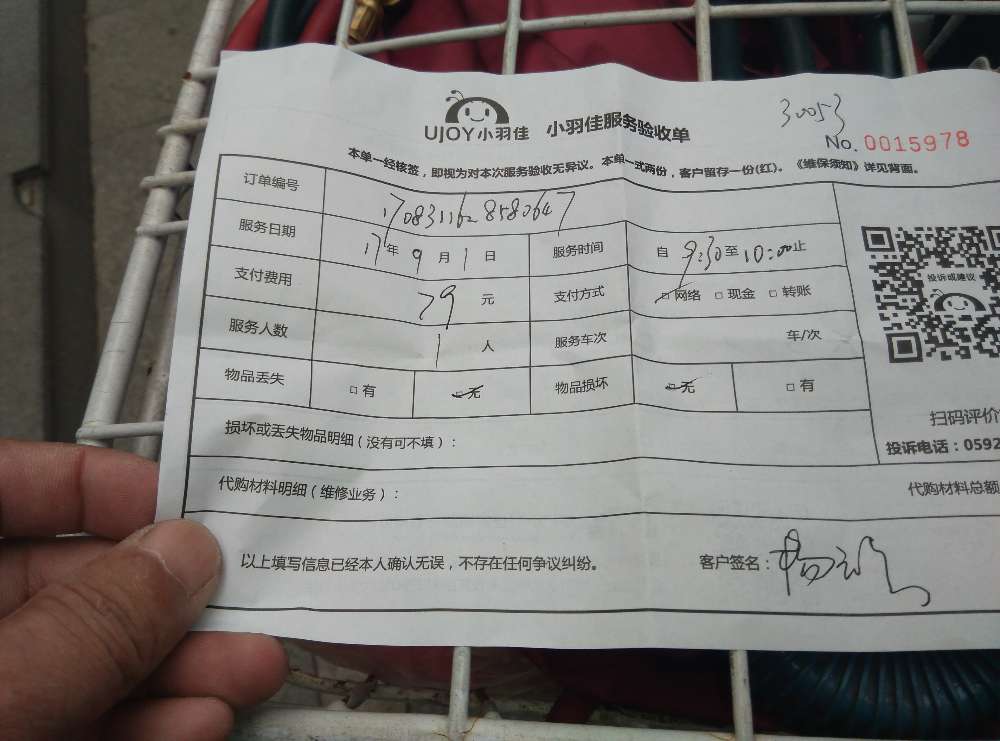 30053
UJOY小羽佳 小羽佳服务验收单
No. 0015978
本单一经核签，即视为对本次服务验收无异议。本单一式两份，客户留存一份(红)。《维保须知》详见背面。
订单编号 1708311628580647
服务日期 17年9月1日 服务时间 自9:30至10:00止
支付费用 79元 支付方式 □网络 □现金 □转账
服务人数 1人 服务车次 车/次
物品丢失 □有 □无 物品损坏 □无 □有
损坏或丢失物品明细（没有可不填）：
代购材料明细（维修业务）： 代购材料总额
投诉或建议
扫码评价
投诉电话：0592
以上填写信息已经本人确认无误，不存在任何争议纠纷。 客户签名：